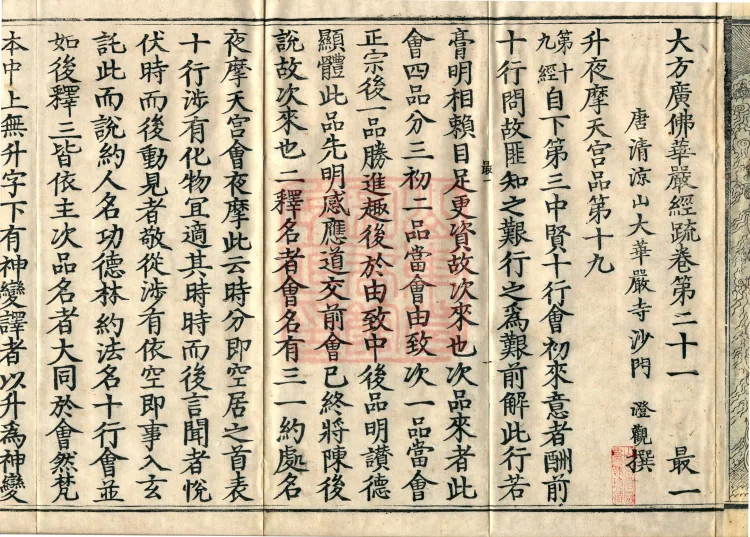 大方廣佛華嚴經䟽卷第二十一 最一
唐清涼山大華嚴寺沙門 澄觀撰
升夜摩天宮品第十九
第十九經自下第三中賢十行會初來意者酬前
十行問故匪知之艱行之為艱前解此行若
最一
膏明相賴目足更資故次來也次品來者此
會四品分三初二品當會由致次一品當會
正宗後一品勝進趣後於由致中後品明讚德
顯體此品先明感應道交前會已終將陳後
說故次來也二釋名者會名有三一約處名
夜摩天宮會夜摩此云時分即空居之首表
十行涉有化物宜適其時時而後言聞者悅
伏時而後動見者敬從涉有依空即事入玄
託此而說約人名功德林約法名十行會並
如後釋三皆依主次品名者大同於會然梵
本中上無升字下有神變譯者以升為神變